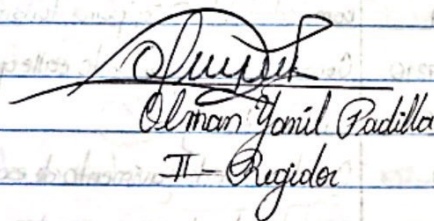 Olman Yamil Padilla
II - Regidor